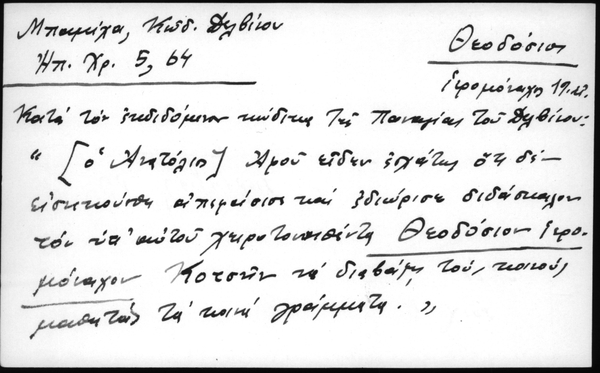 Μπαμίχα, Κώδ. Δελβίνου
Ἠπ. Χρ. 5, 64
Θεοδόσιος
ἱερομόναχος 19. αἰ.
Κατὰ τὸν ἐκδιδόμενον κώδικα τῆς Παναγίας τοῦ Δελβίνου:
“ [ὁ Ἀνατόλιος] Ἀφοῦ εἶδεν ἐσχάτως ὅτι δὲ-
εἰσηκούσθη ἀπεφάσισε καὶ ἐδιώρισε διδάσκαλον
τὸν ὑπ' αὐτοῦ χειροτονηθέντα Θεοδόσιον ἱερο-
μόναχον Κοτσῆν νὰ διαβάζῃ τοὺς κοινοὺς
μαθητὰς τὰ κοινὰ γράμματα. ”